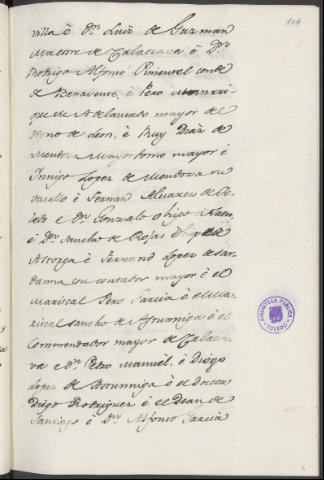 106
villa è Dn. Luiz de Guzman
Maestre de Calatrava è Dn.
Rodrigo Alfonso Pimentel conde
de Benavente, è Pero Manrri-
que Adelantado mayor del
reyno de leon, è Ruy Diaz de
Mendoza Mayordomo mayor è
Innigo Lopez de Mendoza su
vasallo è Fernand Alvarez de To-
ledo e Dn. Gonzalo obispo de Jaen,
è Dn. Sancho de Rojas Obispo de
Astorga è Fernand Lopez de Sal-
danna su contador mayor è el
Mariscal Pero Garcia è el Ma-
riscal Sancho de Astunniga è el
Commendador mayor de Calatra-
va e Dn. Pedro Manuel, è Diego
Lopez de Astunniga è el Doctor
Diego Rodriguez è el Dean de
Santiago è Dn. Alfonso Garcia
BIBLIOTECA PUBLICA
TOLEDO